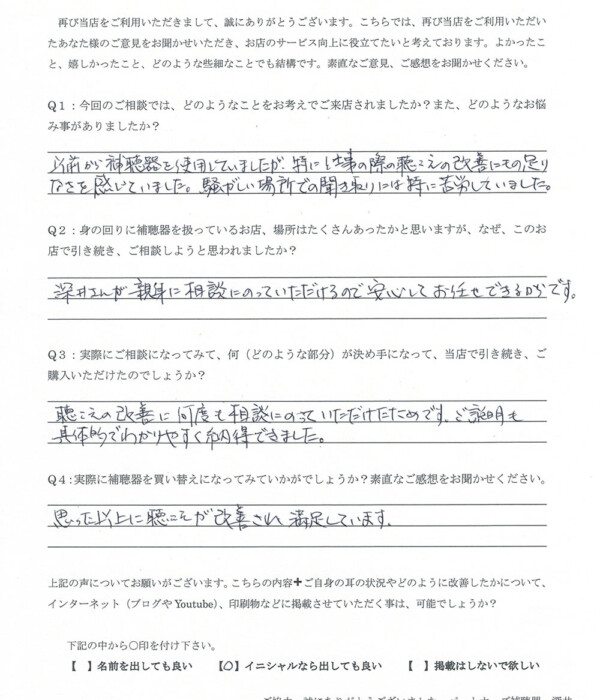 再び当店をご利用いただきまして、誠にありがとうございます。こちらでは、再び当店をご利用いただい
たあなた様のご意見をお聞かせいただき、お店のサービス向上に役立てたいと考えております。よかったこ
と、嬉しかったこと、どのような些細なことでも結構です。素直なご意見、ご感想をお聞かせください。
Q1：今回のご相談では、どのようなことをお考えでご来店されましたか？また、どのようなお悩
み事がありましたか？
以前から補聴器を使用していましたが、特に仕事の際の聴こえの改善にもの足り
なさを感じていました。騒がしい場所での聞き取りには特に苦労していました。
Q2：身の回りに補聴器を扱っているお店、場所はたくさんあったかと思いますが、なぜ、このお
店で引き続き、ご相談しようと思われましたか？
深井さんが親身に相談にのっていただけるので安心してお任せできるからです。
Q3：実際にご相談になってみて、何（どのような部分）が決め手になって、当店で引き続き、ご
購入いただけたのでしょうか？
聴こえの改善に何度も相談にのっていただけたためです。ご説明も
具体的でわかりやすく納得できました。
Q4：実際に補聴器を買い替えになってみていかがでしょうか？素直なご感想をお聞かせください。
思った以上に聴こえが改善され満足しています。
上記の声についてお願いがございます。こちらの内容＋ご自身の耳の状況やどのように改善したかについて、
インターネット（ブログやYoutube）、印刷物などに掲載させていただく事は、可能でしょうか？
下記の中から〇印を付け下さい。
【 】名前を出しても良い 【〇】イニシャルなら出しても良い 【 】掲載はしないで欲しい